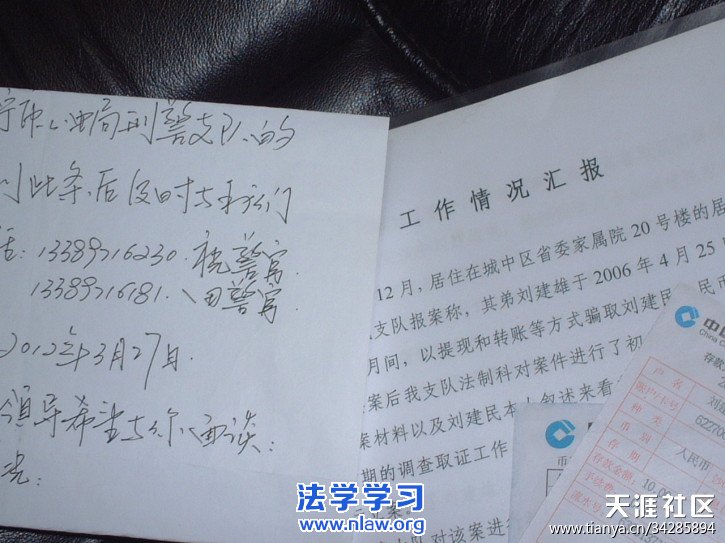 宁市公安局刑警支队的
到此条后及时与我们
话：13389716230.祝警官
13389716181.田警官
2012年3月27日.
领导希望与你面谈：
工作情况汇报
12月，居住在城中区省委家属院20号楼的居
支队报案称，其弟刘建雄于2006年4月25
月间，以提现和转账等方式骗取刘建民
民币
案后我支队法制科对案件进行了初
案材料以及刘建民本人叙述来看
期的调查取证工作
立案。
对该案进行
中国
China C
存款
户名
刘
账户/卡号
62270
种类
币别
人民币
存期
存款金额：
10,00
手续费
流水号
币
法学学习
www.nlaw.org
天涯社区
www.tianya.cn/34285894